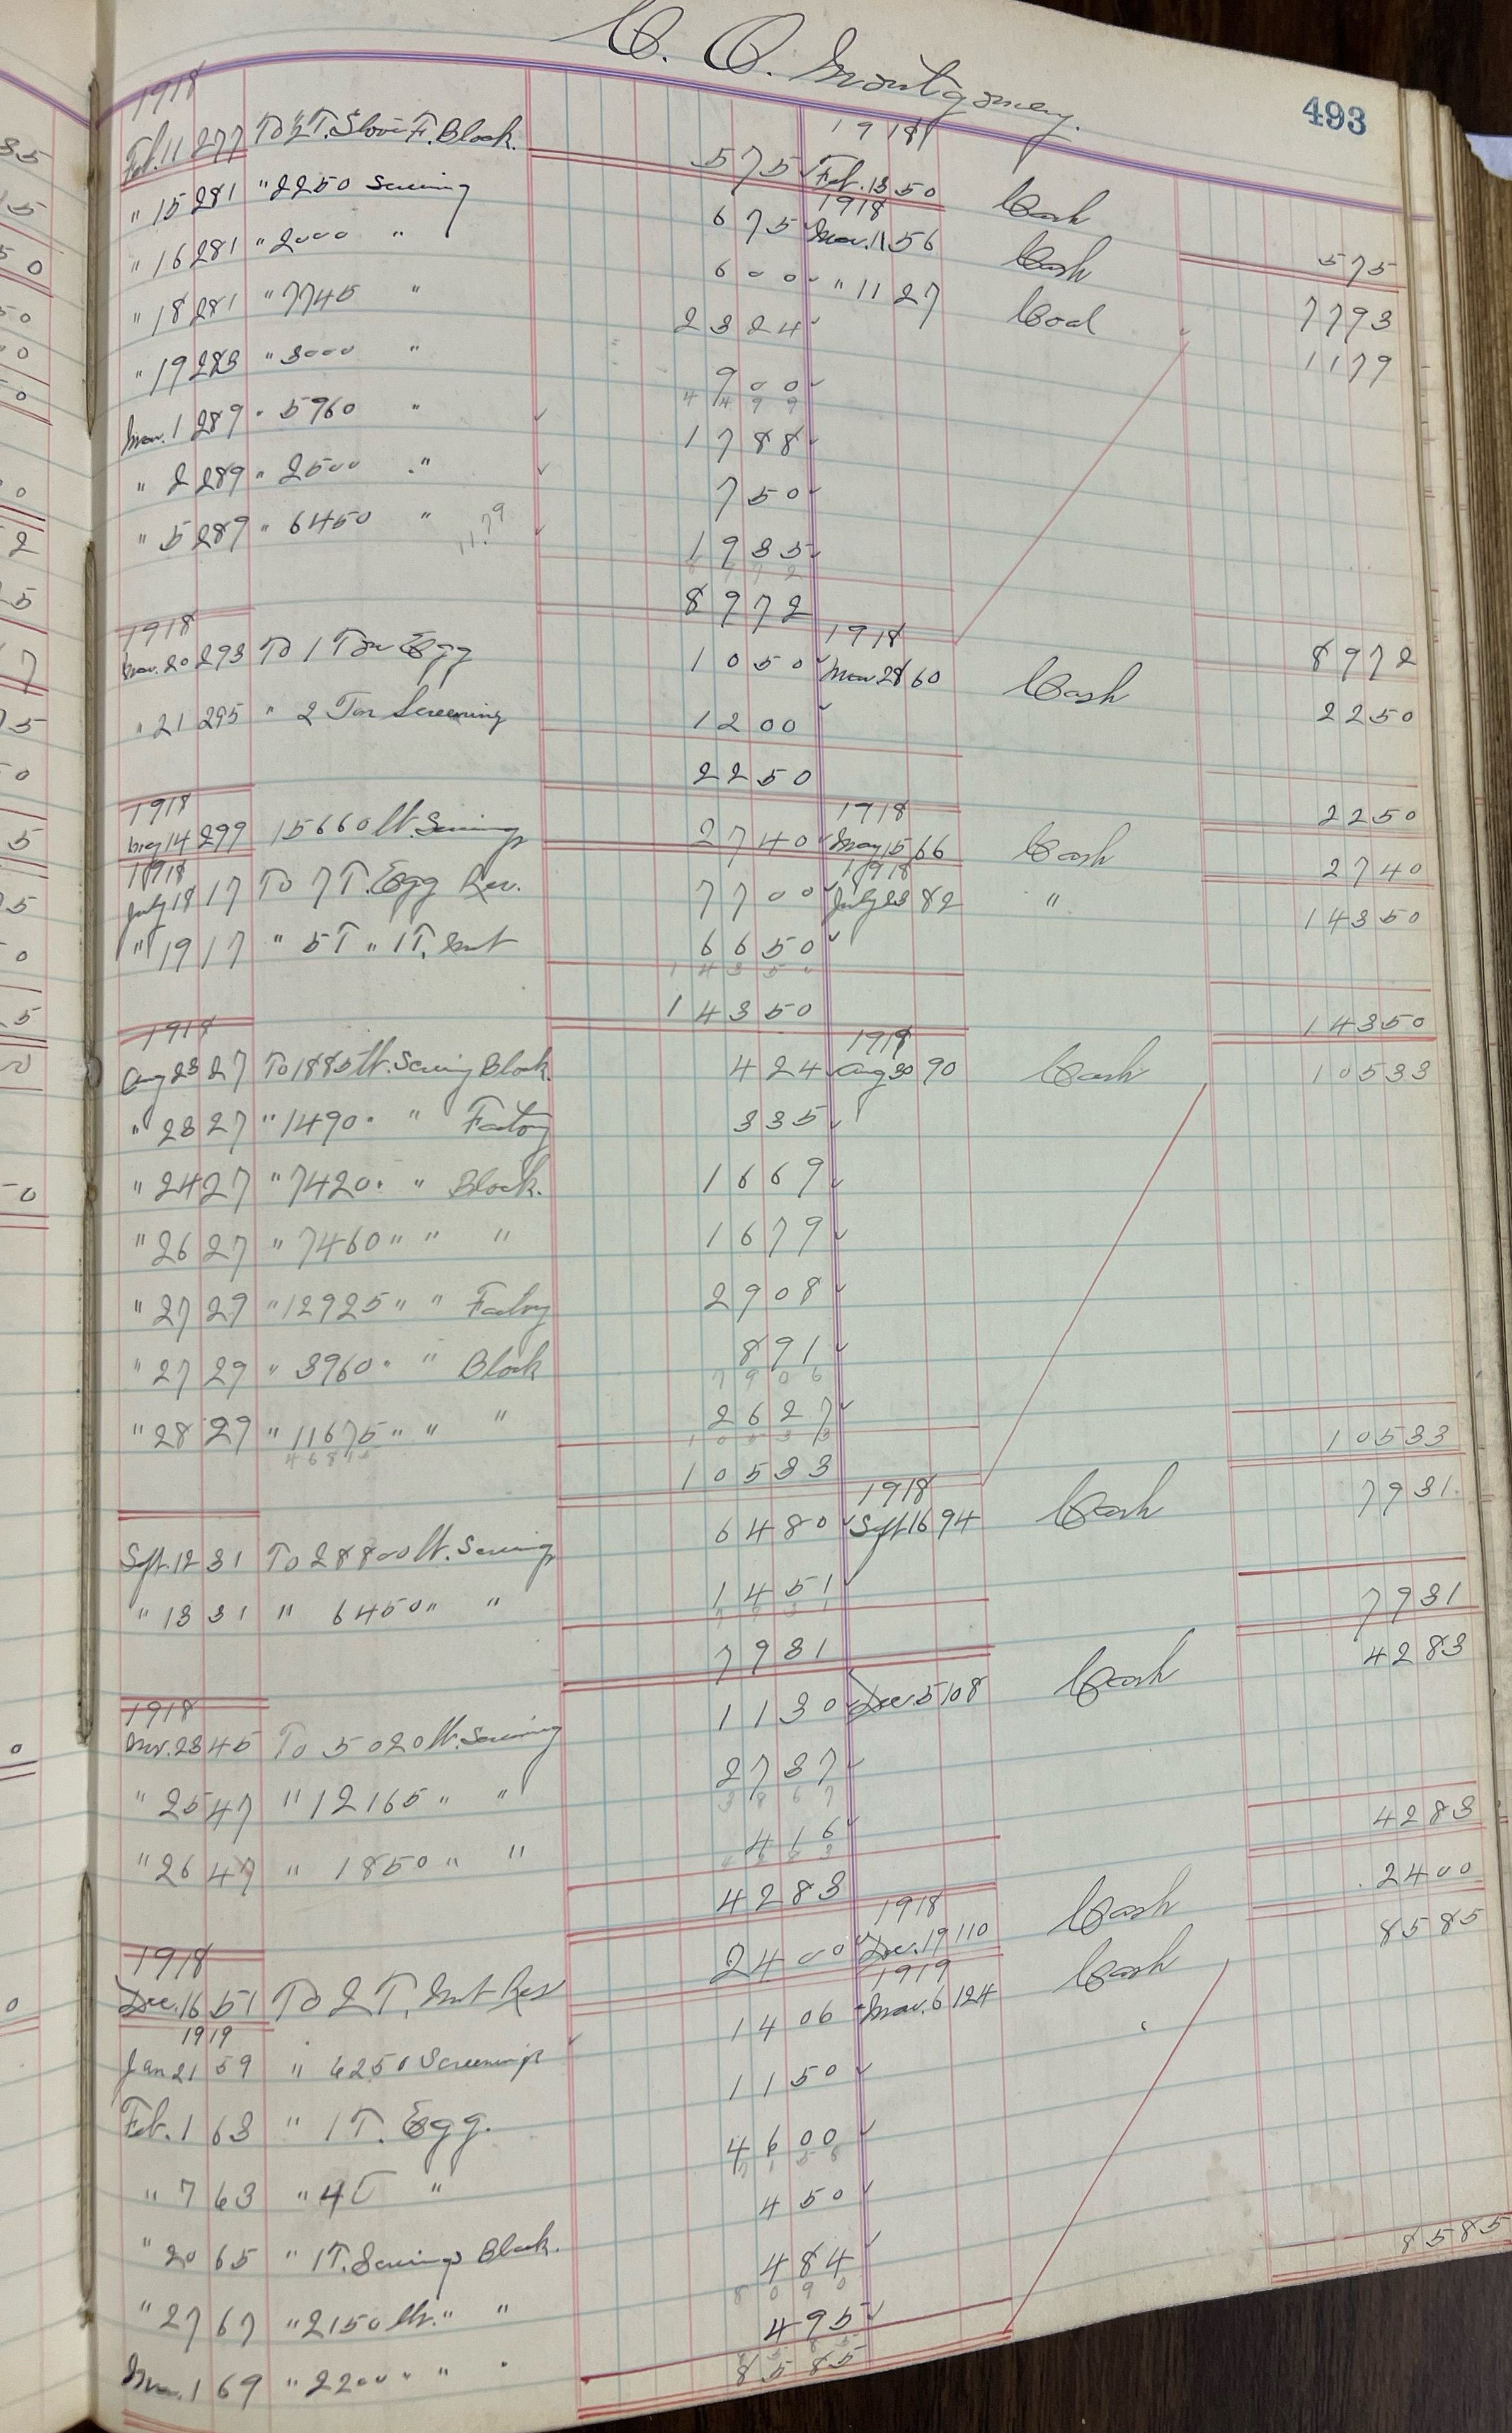 C. O. Montgomery.
493
1918 1918
Feb. 11 277 To ½ T. Stove F. Block. 5 75 Feb. 13 50 Cash 5 75
1918
" 15 281 " 2250 Screening 6 75 Mar. 11 56 Cash 77 93
" 16 281 " 2000 " 6 00 " 11 27 Coal 11 79
" 18 281 " 7745 " 23 24
" 19 283 " 3000 " 9 00
44 99
Mar. 1 289 " 5960 " 17 88
" 2 289 " 2500 " 7 50
" 5 289 " 6450 " 11.79 19 35
89 72
89 72 89 72
1918 1918
Mar. 20 293 To 1 Ton Egg 10 50 Mar 28 60 Cash 22 50
" 21 295 " 2 Ton Screening 12 00
22 50 22 50
1918 1918
May 14 299 15660 lb. Screenings 27 40 May 15 66 Cash 27 40
1918 1918
July 18 17 To 7 T. Egg Res. 77 00 July 23 82 " 143 50
" 19 17 " 5 T " 1 T. Nut 66 50
143 50
143 50 143 50
1918 1918
Aug 23 27 To 1885 lb. Screening Block. 4 24 Aug 30 90 Cash 105 33
" 23 27 " 1490 " " Factory 3 35
" 24 27 " 7420 " " Block. 16 69
" 26 27 " 7460 " " " 16 79
" 27 29 " 12925 " " Factory 29 08
" 27 29 " 3960 " " Block 8 91
79 06
" 28 29 " 11675 " " " 26 27
105 33
105 33 105 33
1918
Sept. 12 31 To 28800 lb. Screenings 64 80 Sept 16 94 Cash 79 31
" 13 31 " 6450 " " 14 51
79 31
79 31 79 31
1918
Nov. 23 45 To 5020 lb. Screening 11 30 Dec. 5 108 Cash 42 83
" 25 47 " 12165 " " 27 37
38 67
" 26 47 " 1850 " " 4 16
42 83
42 83 42 83
1918 1918
Dec. 16 51 To 2 T. Nut Res 24 00 Dec. 19 110 Cash 24 00
1919 1919
Jan 21 59 " 6250 Screenings 14 06 Mar. 6 124 Cash 85 85
Feb. 1 63 " 1 T. Egg. 11 50
" 7 63 " 4 T " 46 00
71 56
" 20 65 " 1 T. Screenings Block. 4 50
" 27 67 " 2150 lb. " " 4 84
80 90
Mar. 1 69 " 2200 " " " 4 95
85 85 85 85